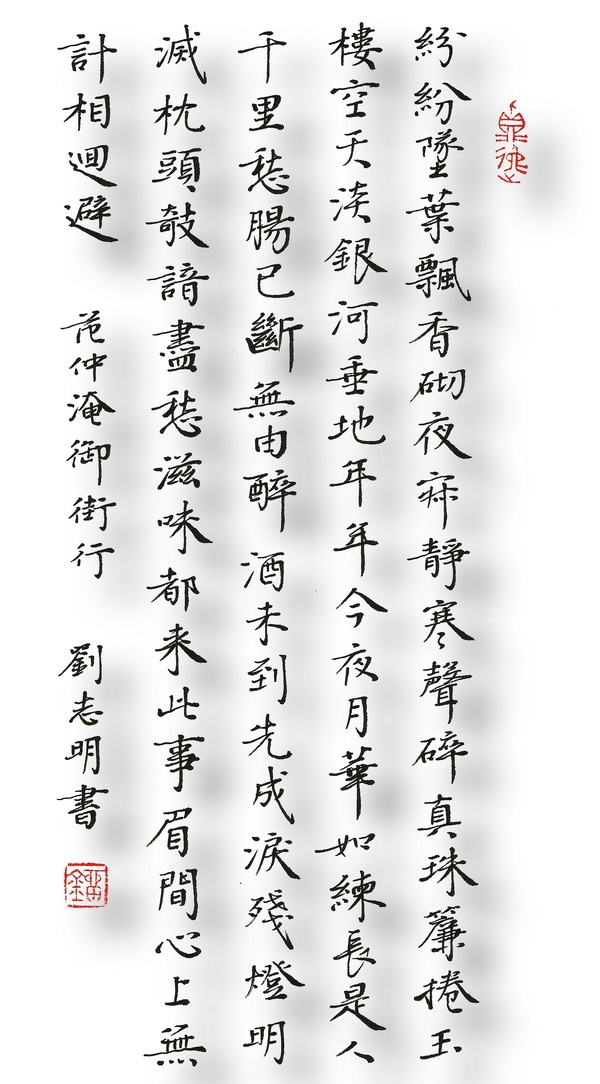 紛紛墜葉飄香砌夜寂靜寒聲碎真珠簾捲玉
樓空天淡銀河垂地年年今夜月華如練長是人
千里愁腸已斷無由醉酒未到先成淚殘燈明
滅枕頭敧諳盡愁滋味都来此事眉間心上無
計相迴避
范仲淹御街行
劉志明書